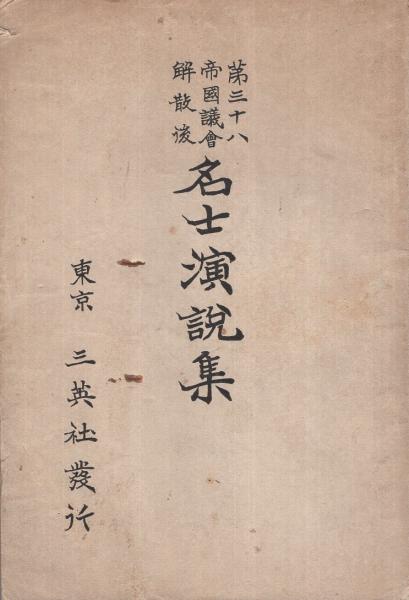 第三十八
帝國議會
解散後
名士演說集
東京 三英社發行